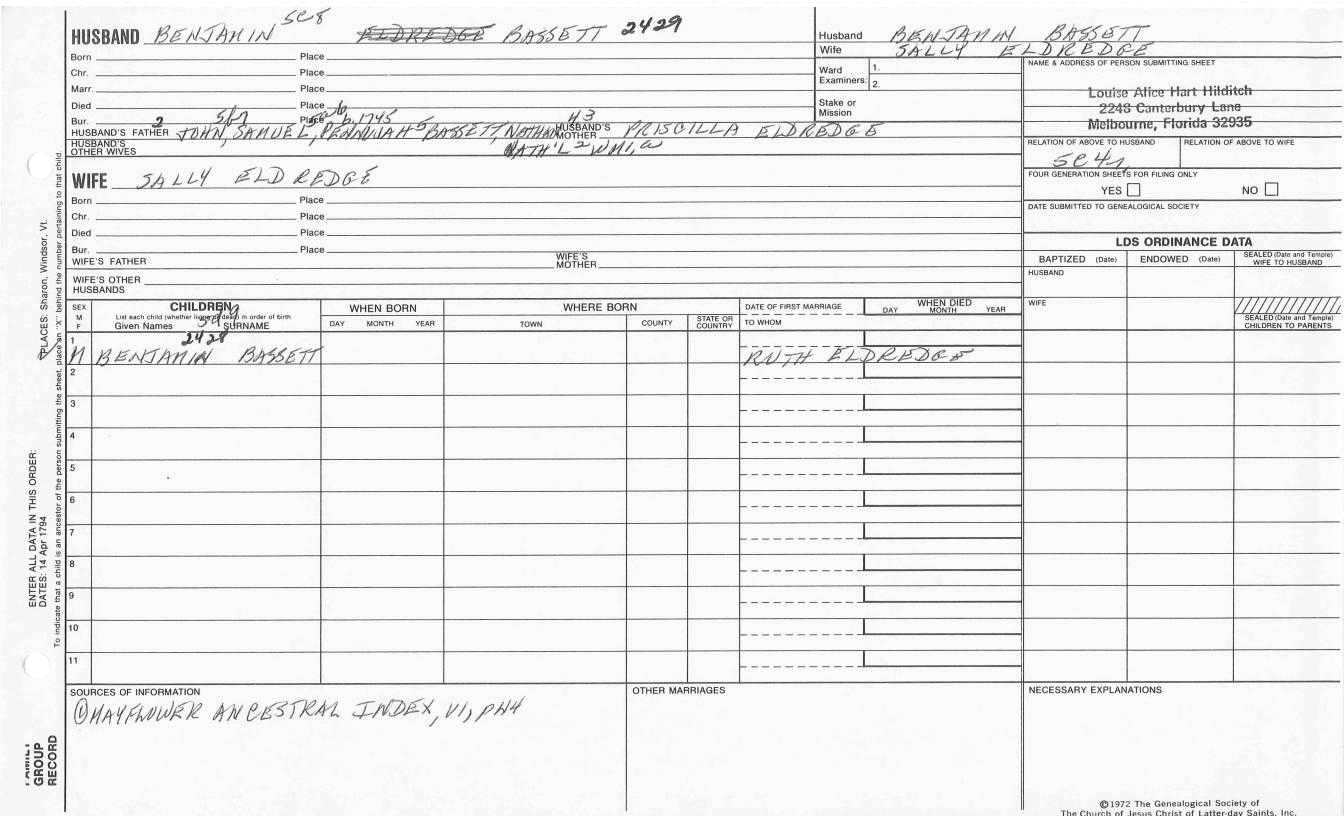 5C8
HUSBAND BENJAMIN ELDREDGE BASSETT 2429
Born Place
Chr. Place
Marr. Place
Died Place
Bur. Place b.1745
HUSBAND'S FATHER JOHN, SAMUEL, BASSETT, NATHAN HUSBAND'S MOTHER PRISCILLA ELDREDGE
HUSBAND'S OTHER WIVES NATH'L
Husband BENJAMIN BASSETT
Wife SALLY ELDREDGE
Ward Examiners: 1.
2.
Stake or Mission
NAME & ADDRESS OF PERSON SUBMITTING SHEET
Louise Alice Hart Hilditch
2243 Canterbury Lane
Melbourne, Florida 32935
RELATION OF ABOVE TO HUSBAND RELATION OF ABOVE TO WIFE
FOUR GENERATION SHEETS FOR FILING ONLY
YES NO
DATE SUBMITTED TO GENEALOGICAL SOCIETY
WIFE SALLY ELDREDGE
Born Place
Chr. Place
Died Place
Bur. Place
WIFE'S FATHER WIFE'S MOTHER
WIFE'S OTHER HUSBANDS
LDS ORDINANCE DATA
BAPTIZED (Date) ENDOWED (Date) SEALED (Date and Temple) WIFE TO HUSBAND
HUSBAND
WIFE
SEALED (Date and Temple) CHILDREN TO PARENTS
SEX M F
CHILDREN
List each child (whether living or dead) in order of birth
Given Names SURNAME
WHEN BORN
DAY MONTH YEAR
WHERE BORN
TOWN COUNTY STATE OR COUNTRY
DATE OF FIRST MARRIAGE
TO WHOM
WHEN DIED
DAY MONTH YEAR
2428
1 M BENJAMIN BASSETT RUTH ELDREDGE
2
3
4
5
6
7
8
9
10
11
SOURCES OF INFORMATION
① MAYFLOWER ANCESTRAL INDEX, V1, P44
OTHER MARRIAGES
NECESSARY EXPLANATIONS
©1972 The Genealogical Society of
The Church of Jesus Christ of Latter-day Saints, Inc.
PLACES: Sharon, Windsor, Vt.
ENTER ALL DATA IN THIS ORDER:
DATES: 14 Apr 1794
To indicate that a child is an ancestor of the person submitting the sheet, place an "X" behind the number pertaining to that child.
FAMILY GROUP RECORD